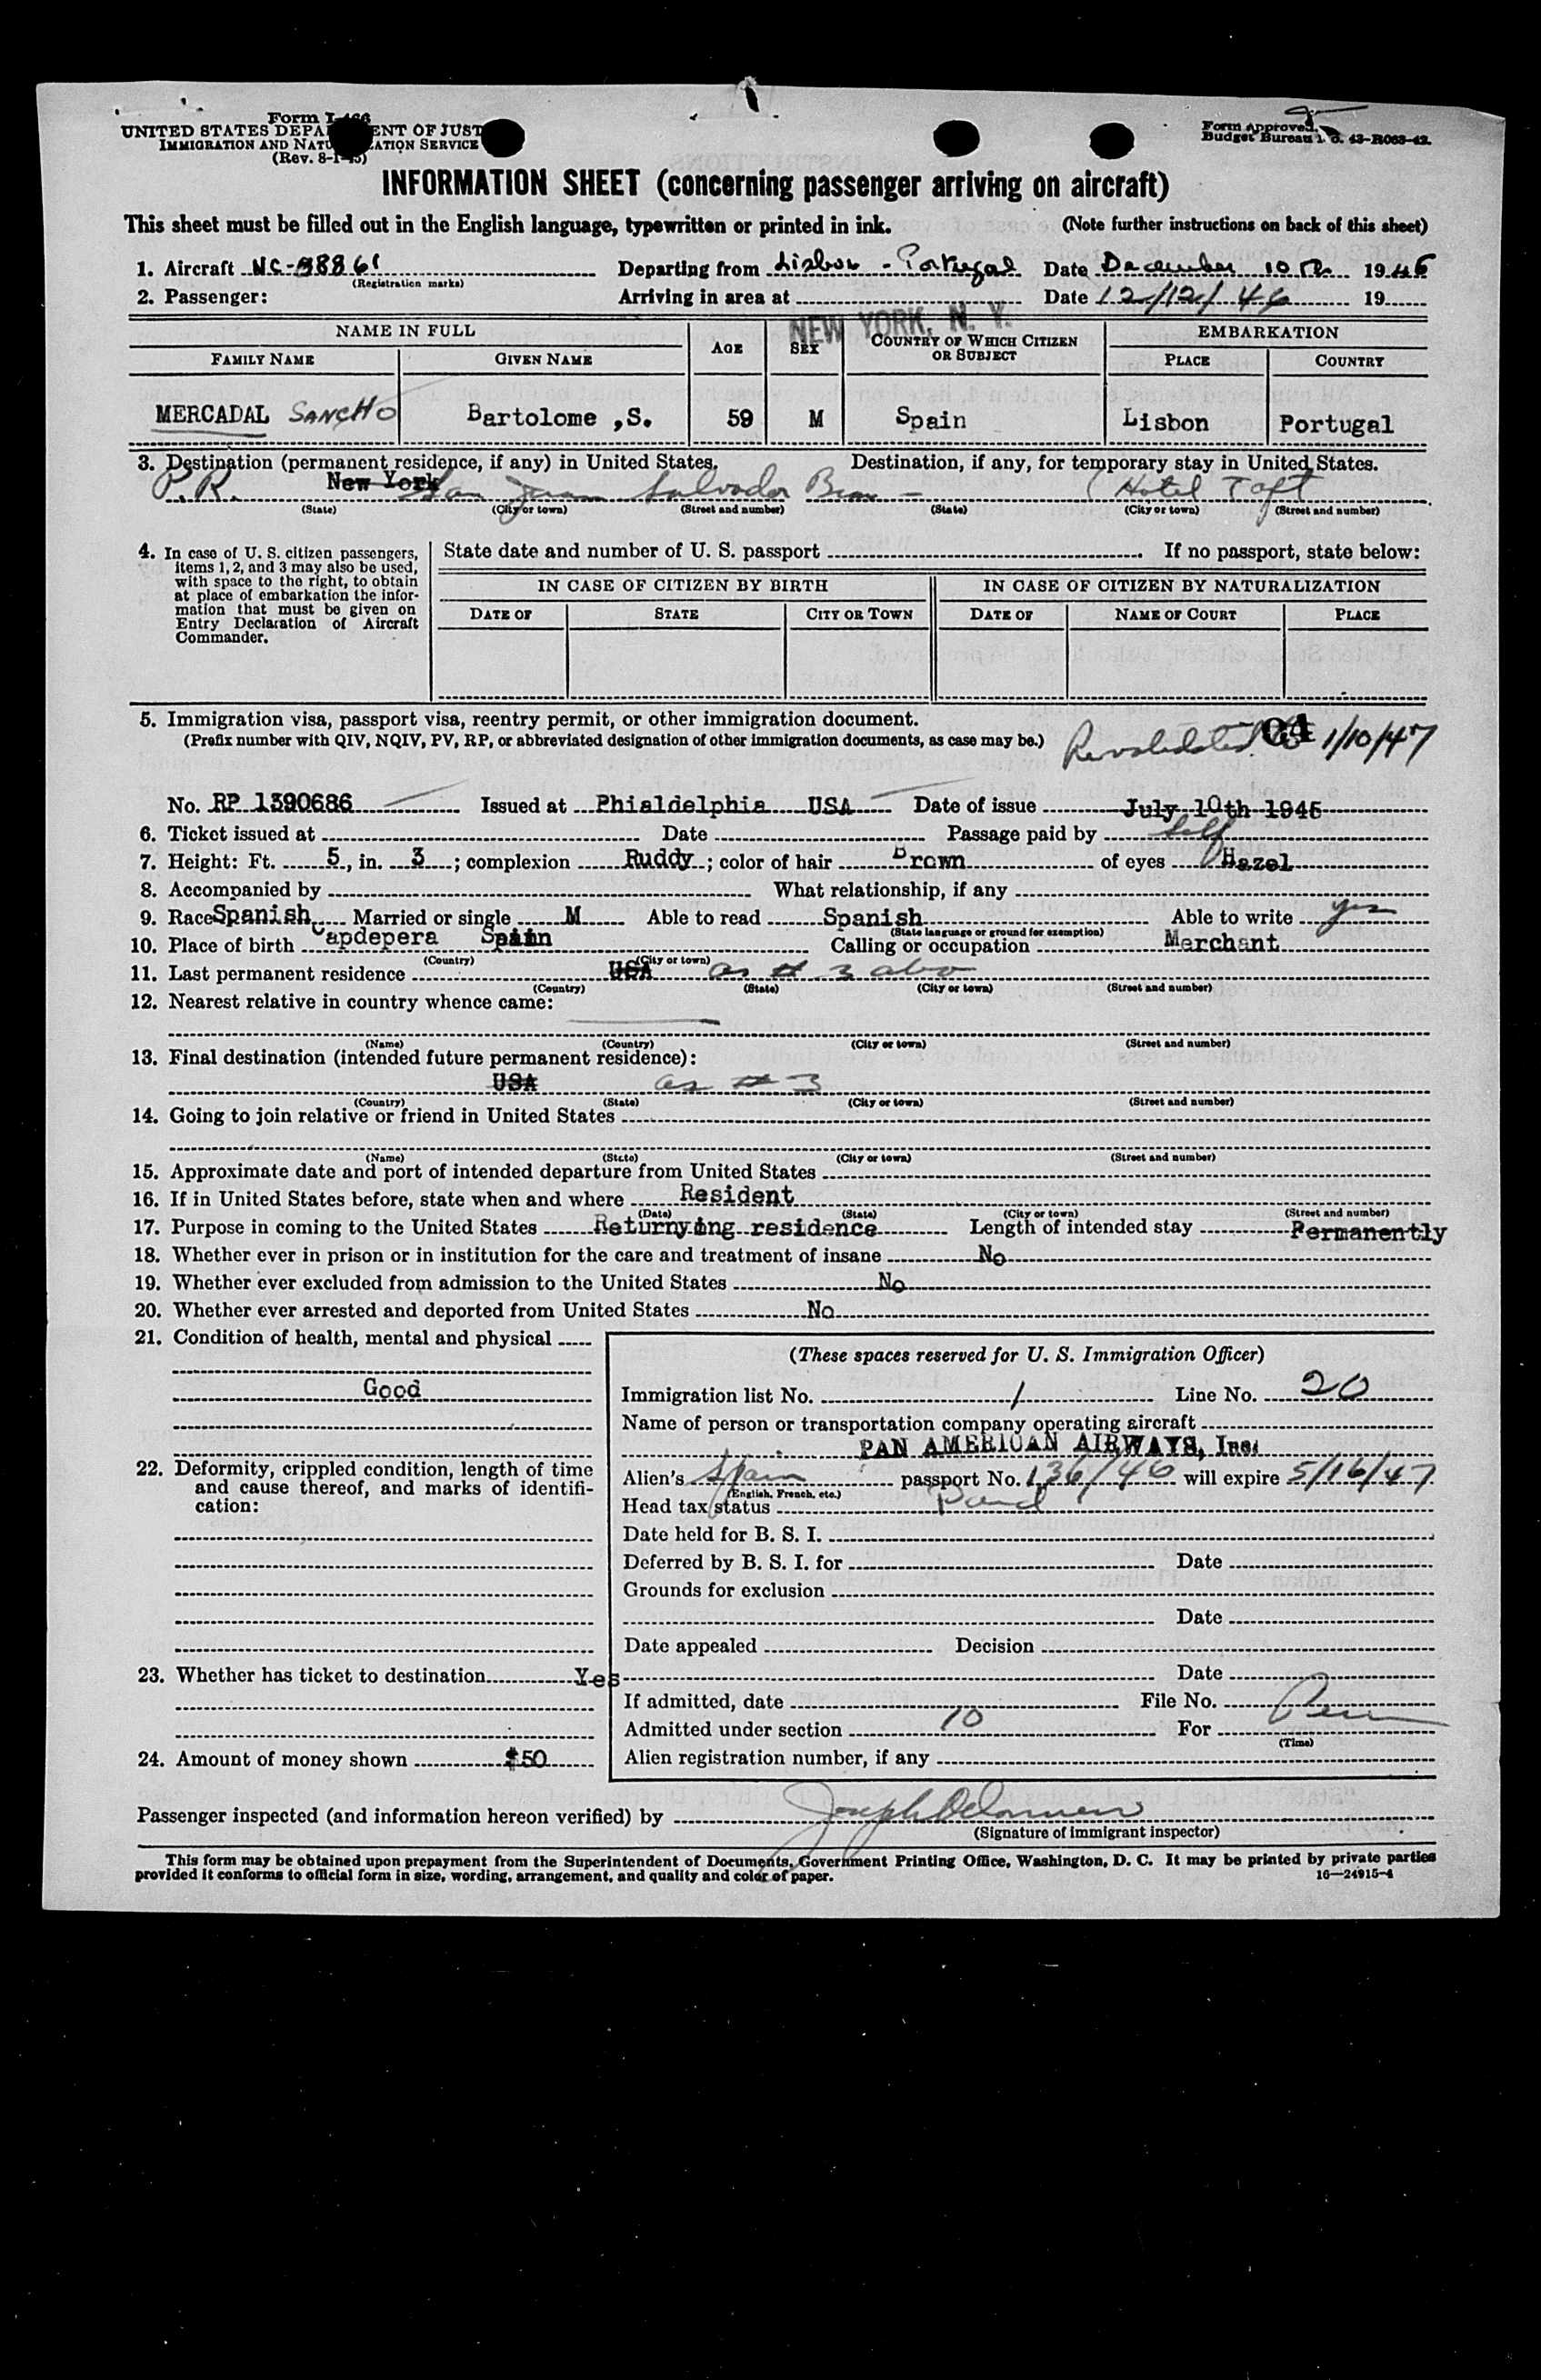 Form I-466
UNITED STATES DEPARTMENT OF JUSTICE
IMMIGRATION AND NATURALIZATION SERVICE
(Rev. 8-1-45)
Form Approved.
Budget Bureau No. 43-R063-42.
INFORMATION SHEET (concerning passenger arriving on aircraft)
This sheet must be filled out in the English language, typewritten or printed in ink. (Note further instructions on back of this sheet)
1. Aircraft NC-88861 Departing from Lisbon - Portugal Date December 10th 1946
(Registration marks)
2. Passenger: Arriving in area at NEW YORK, N. Y. Date 12/12/46 19
NAME IN FULL AGE SEX COUNTRY OF WHICH CITIZEN OR SUBJECT EMBARKATION
FAMILY NAME GIVEN NAME PLACE COUNTRY
MERCADAL SANCHO Bartolome ,S. 59 M Spain Lisbon Portugal
3. Destination (permanent residence, if any) in United States. Destination, if any, for temporary stay in United States.
P.R. New York San Juan Salvador Brau - Hotel Taft
(State) (City or town) (Street and number) (State) (City or town) (Street and number)
4. In case of U. S. citizen passengers, items 1, 2, and 3 may also be used, with space to the right, to obtain at place of embarkation the information that must be given on Entry Declaration of Aircraft Commander.
State date and number of U. S. passport If no passport, state below:
IN CASE OF CITIZEN BY BIRTH IN CASE OF CITIZEN BY NATURALIZATION
DATE OF STATE CITY OR TOWN DATE OF NAME OF COURT PLACE
5. Immigration visa, passport visa, reentry permit, or other immigration document.
(Prefix number with QIV, NQIV, PV, RP, or abbreviated designation of other immigration documents, as case may be.) Revalidated to 1/10/47
No. RP 1390686 Issued at Phialdelphia USA Date of issue July 10th 1945
6. Ticket issued at Date Passage paid by Self
7. Height: Ft. 5, in. 3; complexion Ruddy; color of hair Brown of eyes Hazel
8. Accompanied by What relationship, if any
9. Race Spanish Married or single M Able to read Spanish Able to write yes
(State language or ground for exemption)
10. Place of birth Capdepera Spain Calling or occupation Merchant
(Country) (City or town)
11. Last permanent residence USA as # 3 abo
(Country) (State) (City or town) (Street and number)
12. Nearest relative in country whence came:
(Name) (Country) (City or town) (Street and number)
13. Final destination (intended future permanent residence):
USA as # 3
(Country) (State) (City or town) (Street and number)
14. Going to join relative or friend in United States
(Name) (State) (City or town) (Street and number)
15. Approximate date and port of intended departure from United States
16. If in United States before, state when and where Resident
(Date) (State) (City or town) (Street and number)
17. Purpose in coming to the United States Returnying residence Length of intended stay Permanently
18. Whether ever in prison or in institution for the care and treatment of insane No
19. Whether ever excluded from admission to the United States No
20. Whether ever arrested and deported from United States No
21. Condition of health, mental and physical
Good
22. Deformity, crippled condition, length of time and cause thereof, and marks of identification:
23. Whether has ticket to destination Yes
24. Amount of money shown $50
(These spaces reserved for U. S. Immigration Officer)
Immigration list No. 1 Line No. 20
Name of person or transportation company operating aircraft
PAN AMERICAN AIRWAYS, Inc.
Alien's Spain passport No. 136/46 will expire 5/16/47
(English, French, etc.)
Head tax status
Date held for B. S. I.
Deferred by B. S. I. for Date
Grounds for exclusion
Date
Date appealed Decision
Date
If admitted, date File No.
Admitted under section 10 For Perm
(Time)
Alien registration number, if any
Passenger inspected (and information hereon verified) by
(Signature of immigrant inspector)
This form may be obtained upon prepayment from the Superintendent of Documents, Government Printing Office, Washington, D. C. It may be printed by private parties
provided it conforms to official form in size, wording, arrangement, and quality and color of paper. 16—24915-4